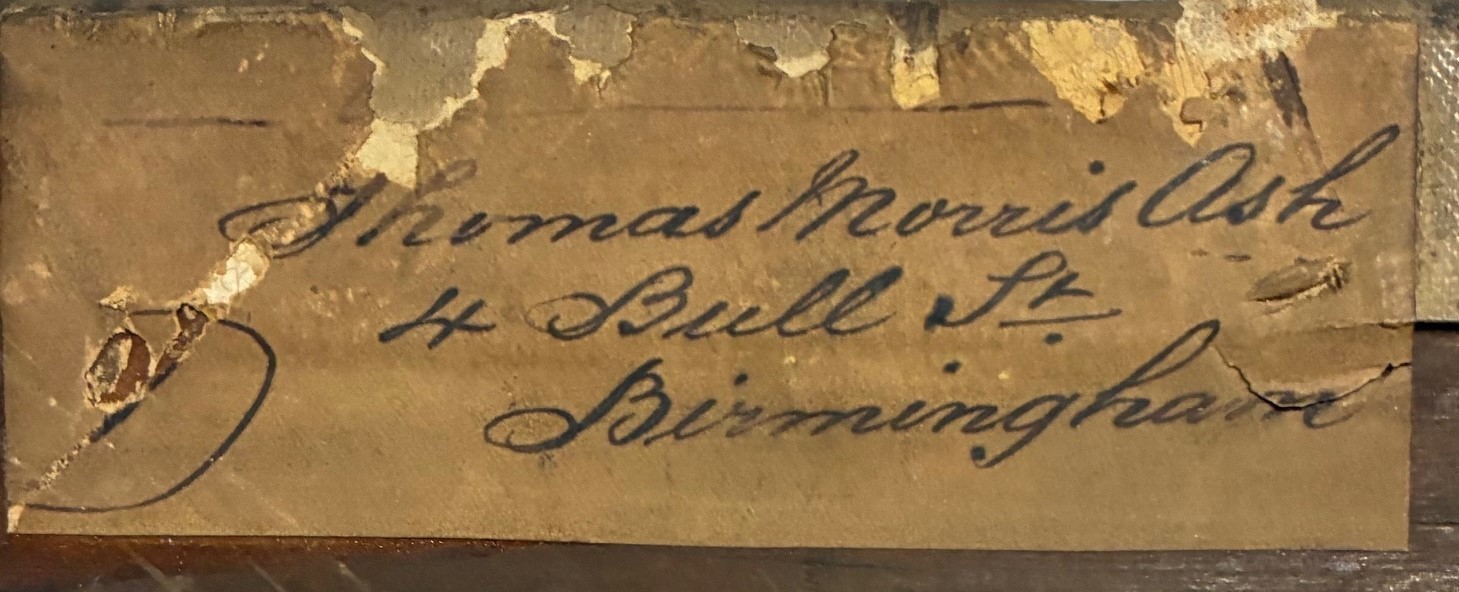 Thomas Morris Ash
4 Bull St.
Birmingham
D